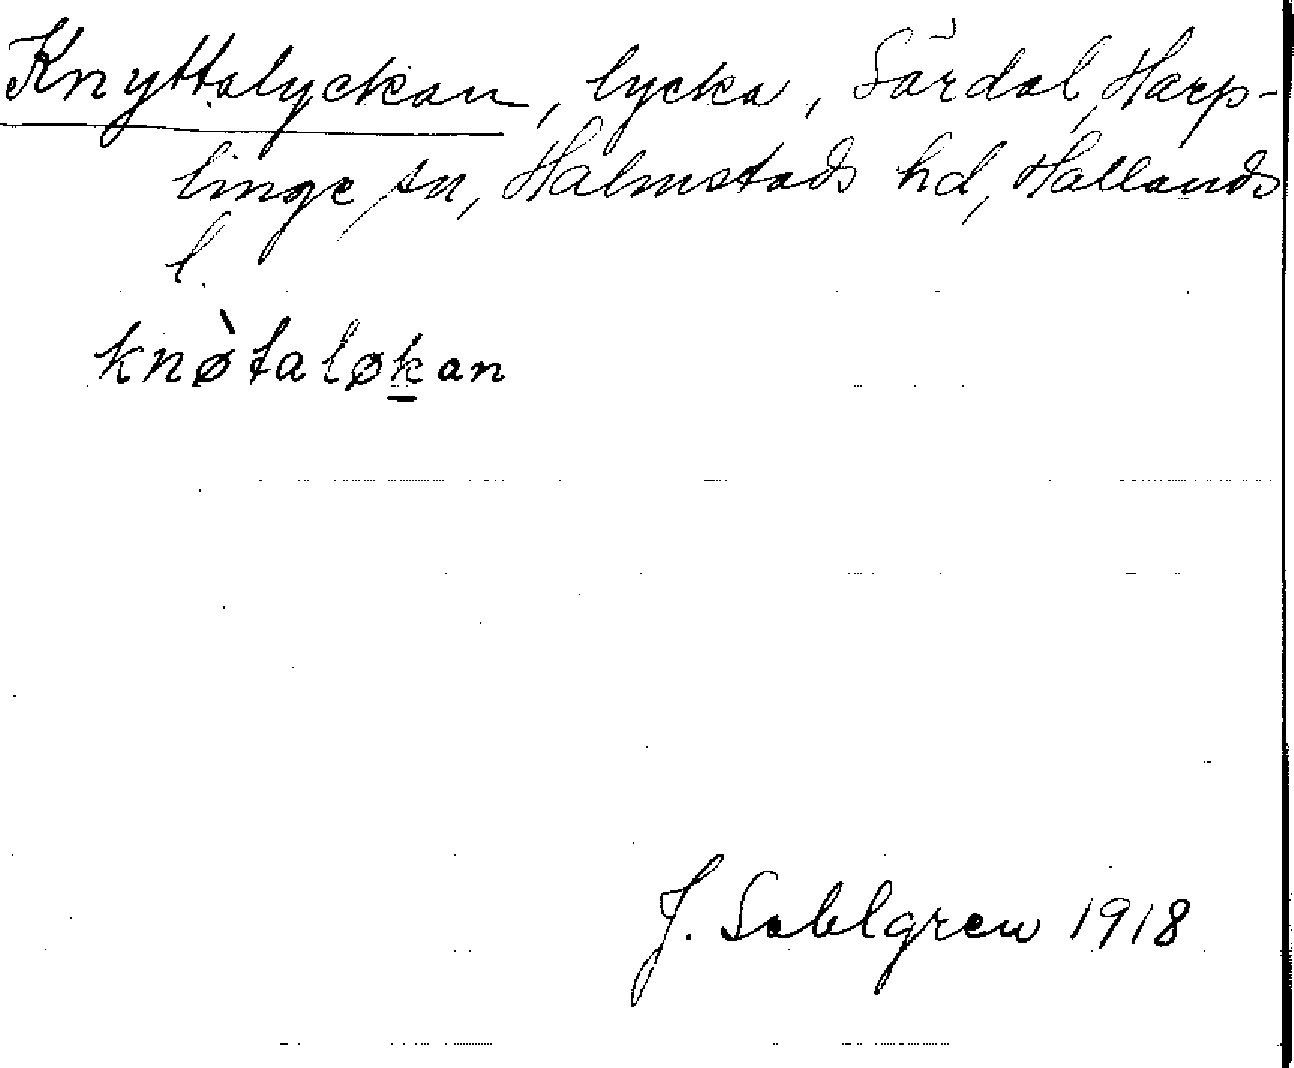 Knyttalyckan, lycka, Särdal, Harp-
linge sn, Halmstads hd, Hallands
l.
knø̀taløk̲an
J. Sahlgren 1918